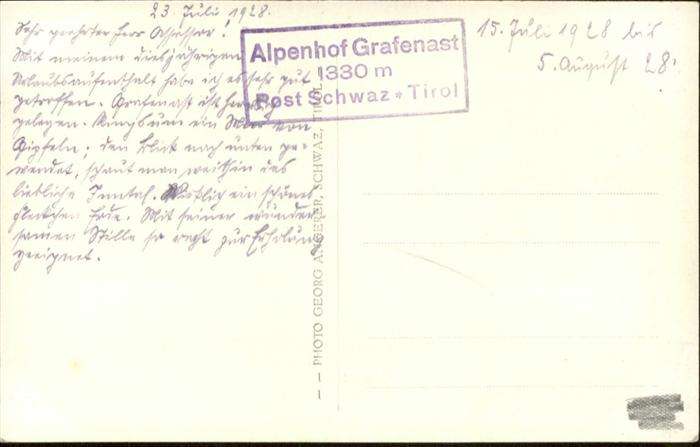 23. Juli 1928.
Sehr geehrter Herr Assessor!
Mit meinem diesjährigen
Urlaubsaufenthalt habe ich es sehr gut
getroffen. Grafenast ist herrlich
gelegen. Ringsum ein Meer von
Gipfeln; den Blick nach unten ge-
wendet, schaut man weithin das
liebliche Inntal. Wirklich ein schönes
Fleckchen Erde. Mit seiner wunder
samen Stille so recht zur Erholung
geeignet.
Alpenhof Grafenast
1330 m
Post Schwaz * Tirol
15. Juli 1928 bis
5. August 28.
— PHOTO GEORG ANGERER, SCHWAZ, TIROL